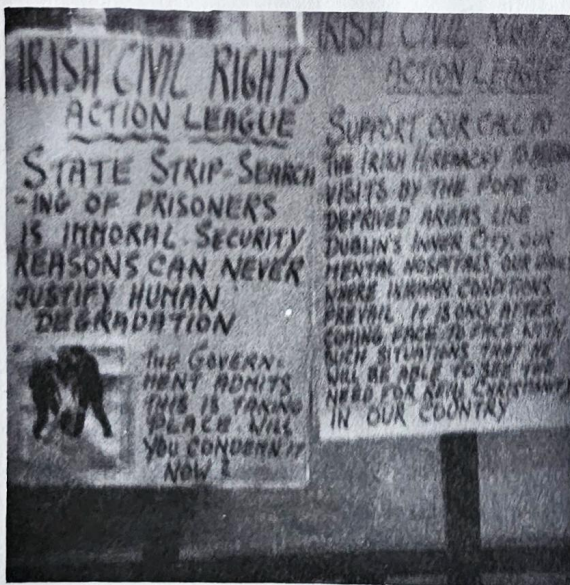 IRISH CIVIL RIGHTS
ACTION LEAGUE
STATE STRIP-SEARCH
-ING OF PRISONERS
IS IMMORAL. SECURITY
REASONS CAN NEVER
JUSTIFY HUMAN
DEGRADATION
THE GOVERN-
MENT ADMITS
THIS IS TAKING
PLACE. WILL
YOU CONDEMN IT
NOW?
IRISH CIVIL RIGHTS
ACTION LEAGUE
SUPPORT OUR CALL TO
THE IRISH HIERARCHY
VISITS BY THE POPE TO
DEPRIVED AREAS LIKE
DUBLIN'S INNER CITY, OUR
MENTAL HOSPITALS, OUR
WHERE INHUMAN CONDITIONS
PREVAIL. IT IS ONLY AFTER
COMING FACE TO FACE WITH
SUCH SITUATIONS THAT HE
WILL BE ABLE TO SEE THE
NEED FOR REAL CHRISTIANITY
IN OUR COUNTRY